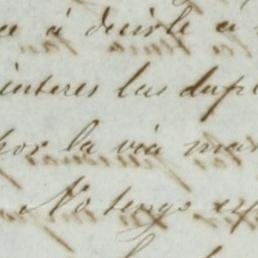 a decirle a
interes las dupl
por la via mar
No tengo esp